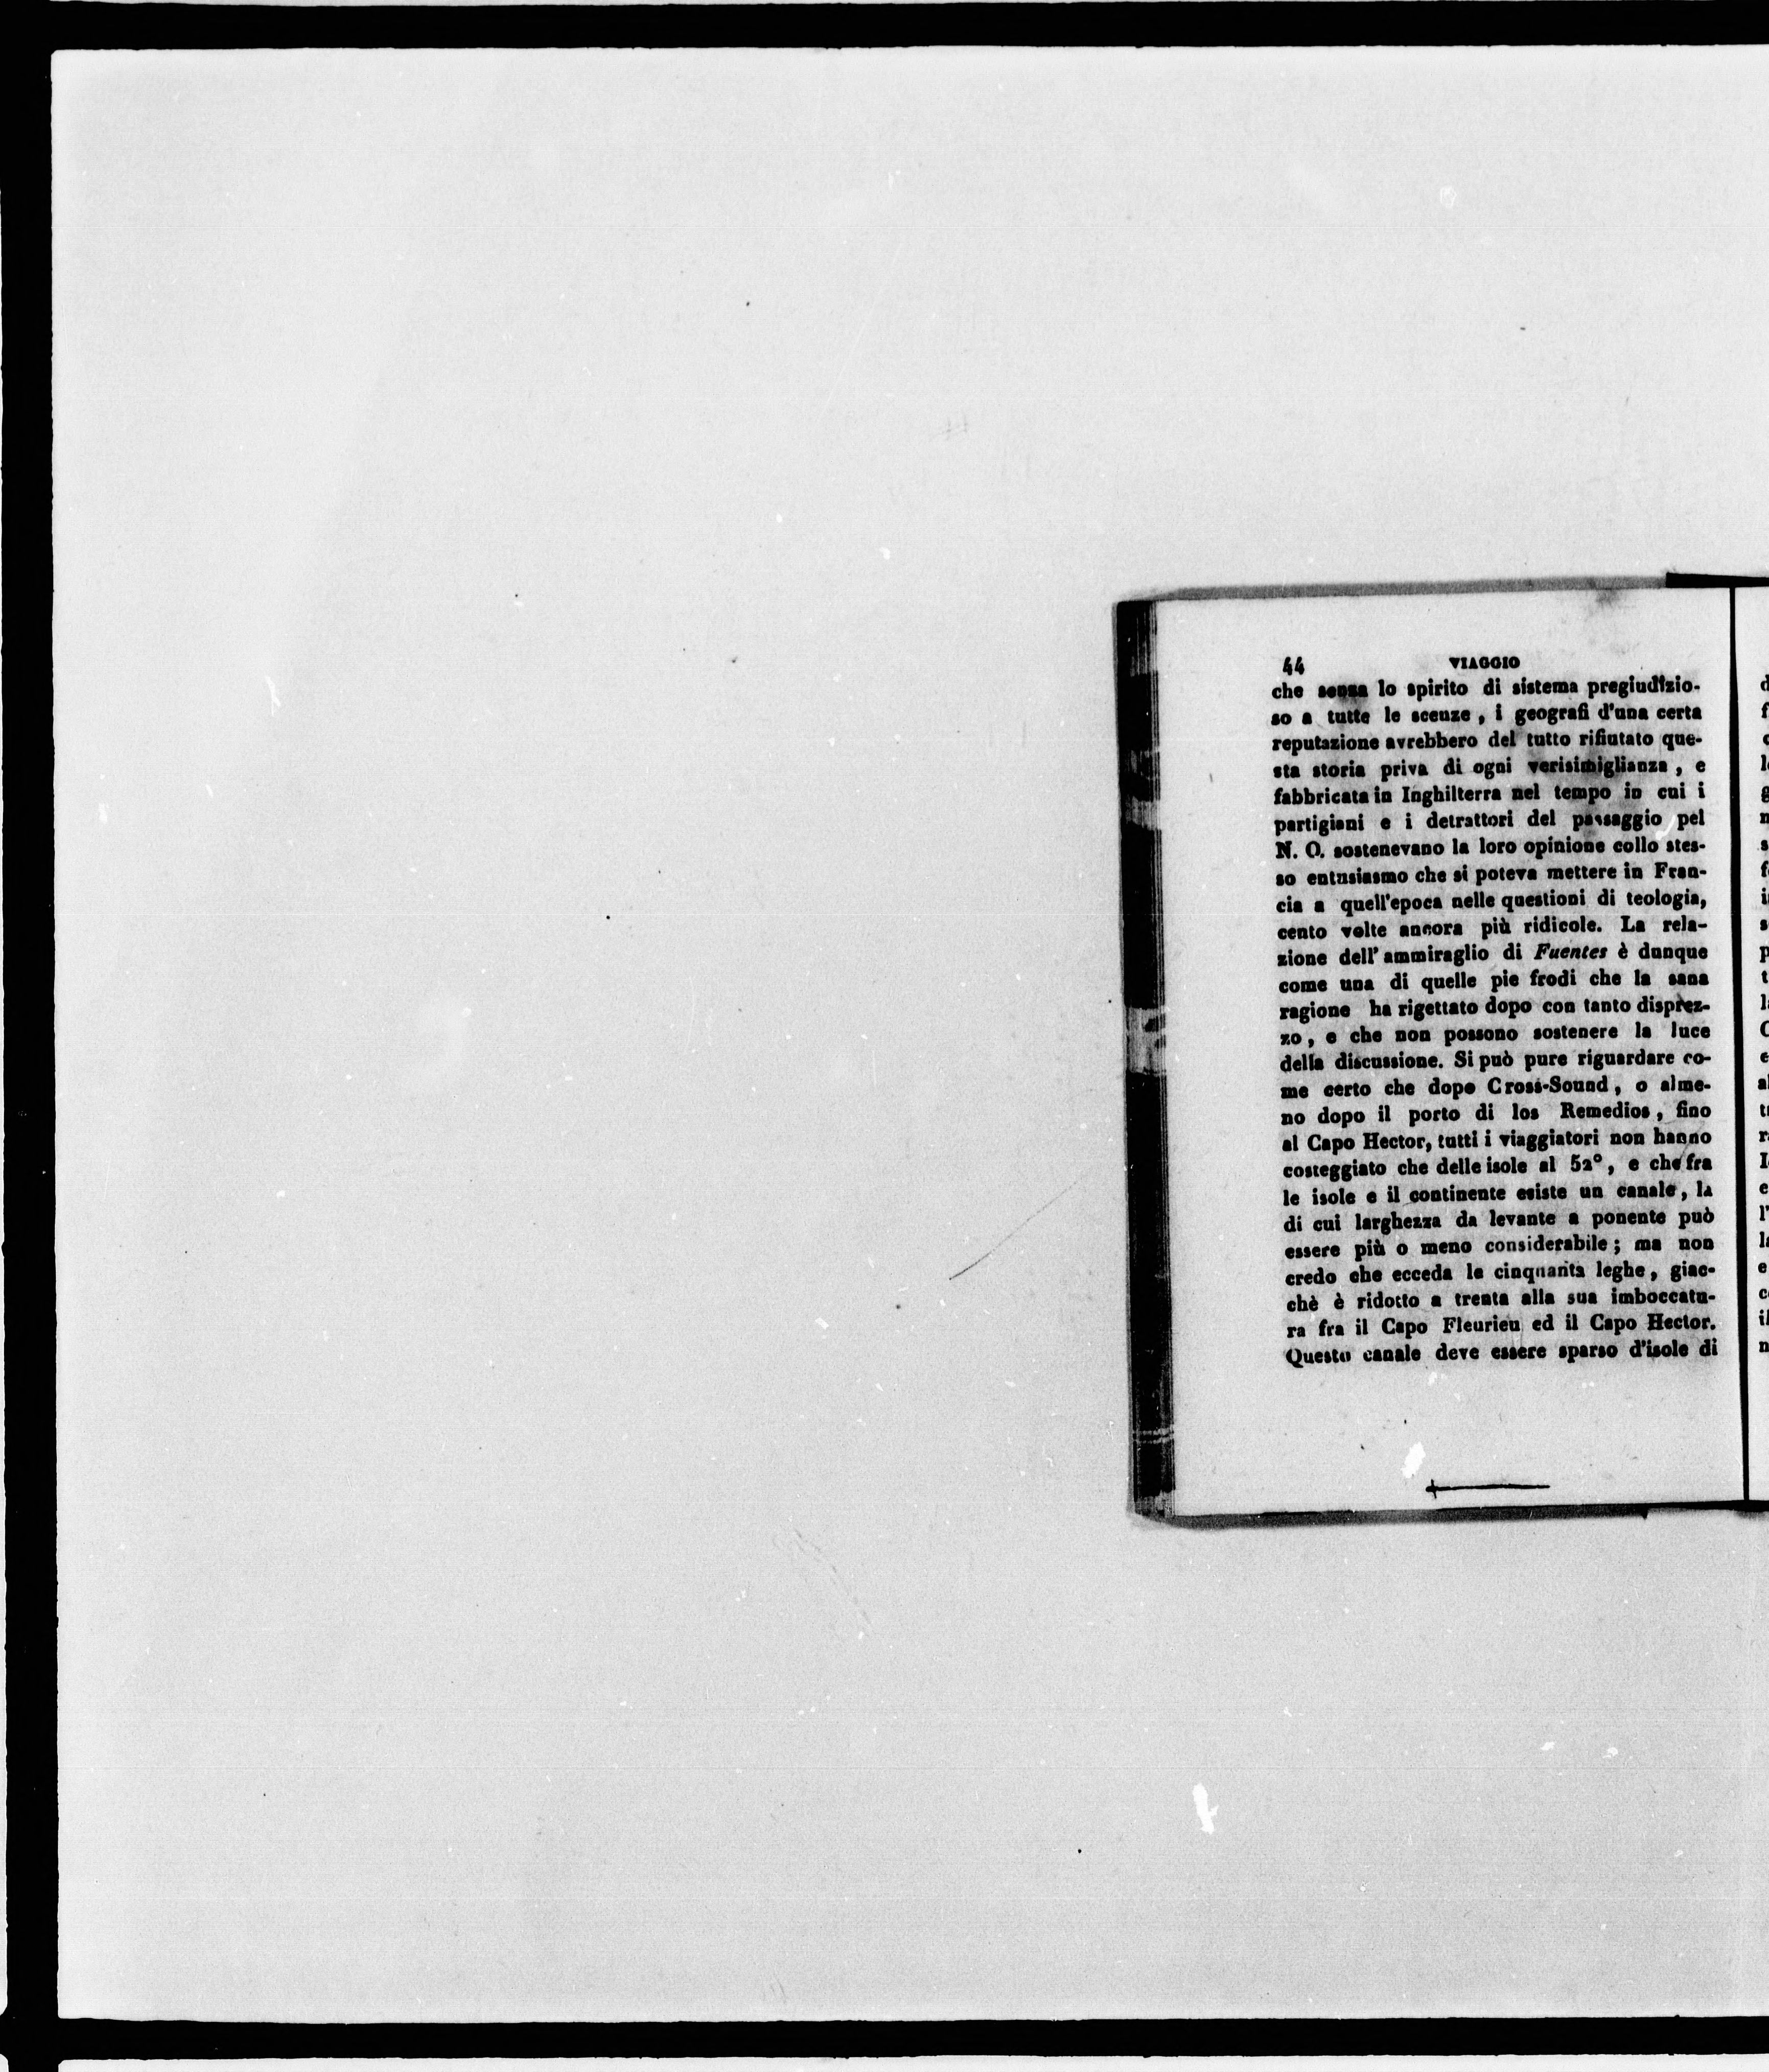 44 VIAGGIO
che senza lo spirito di sistema pregiudizio-
so a tutte le scenze, i geografi d'una certa
reputazione avrebbero del tutto rifiutato que-
sta storia priva di ogni verisimiglianza, e
fabbricata in Inghilterra nel tempo in cui i
partigiani e i detrattori del passaggio pel
N. O. sostenevano la loro opinione collo stes-
so entusiasmo che si poteva mettere in Fran-
cia a quell'epoca nelle questioni di teologia,
cento volte ancora più ridicole. La rela-
zione dell'ammiraglio di Fuentes è dunque
come una di quelle pie frodi che la sana
ragione ha rigettato dopo con tanto disprez-
zo, e che non possono sostenere la luce
della discussione. Si può pure riguardare co-
me certo che dopo Cross-Sound, o alme-
no dopo il porto di los Remedios, fino
al Capo Hector, tutti i viaggiatori non hanno
costeggiato che delle isole al 52°, e che fra
le isole e il continente esiste un canale, la
di cui larghezza da levante a ponente può
essere più o meno considerabile; ma non
credo che ecceda le cinquanta leghe, giac-
chè è ridotto a trenta alla sua imboccatu-
ra fra il Capo Fleurieu ed il Capo Hector.
Questo canale deve essere sparso d'isole di